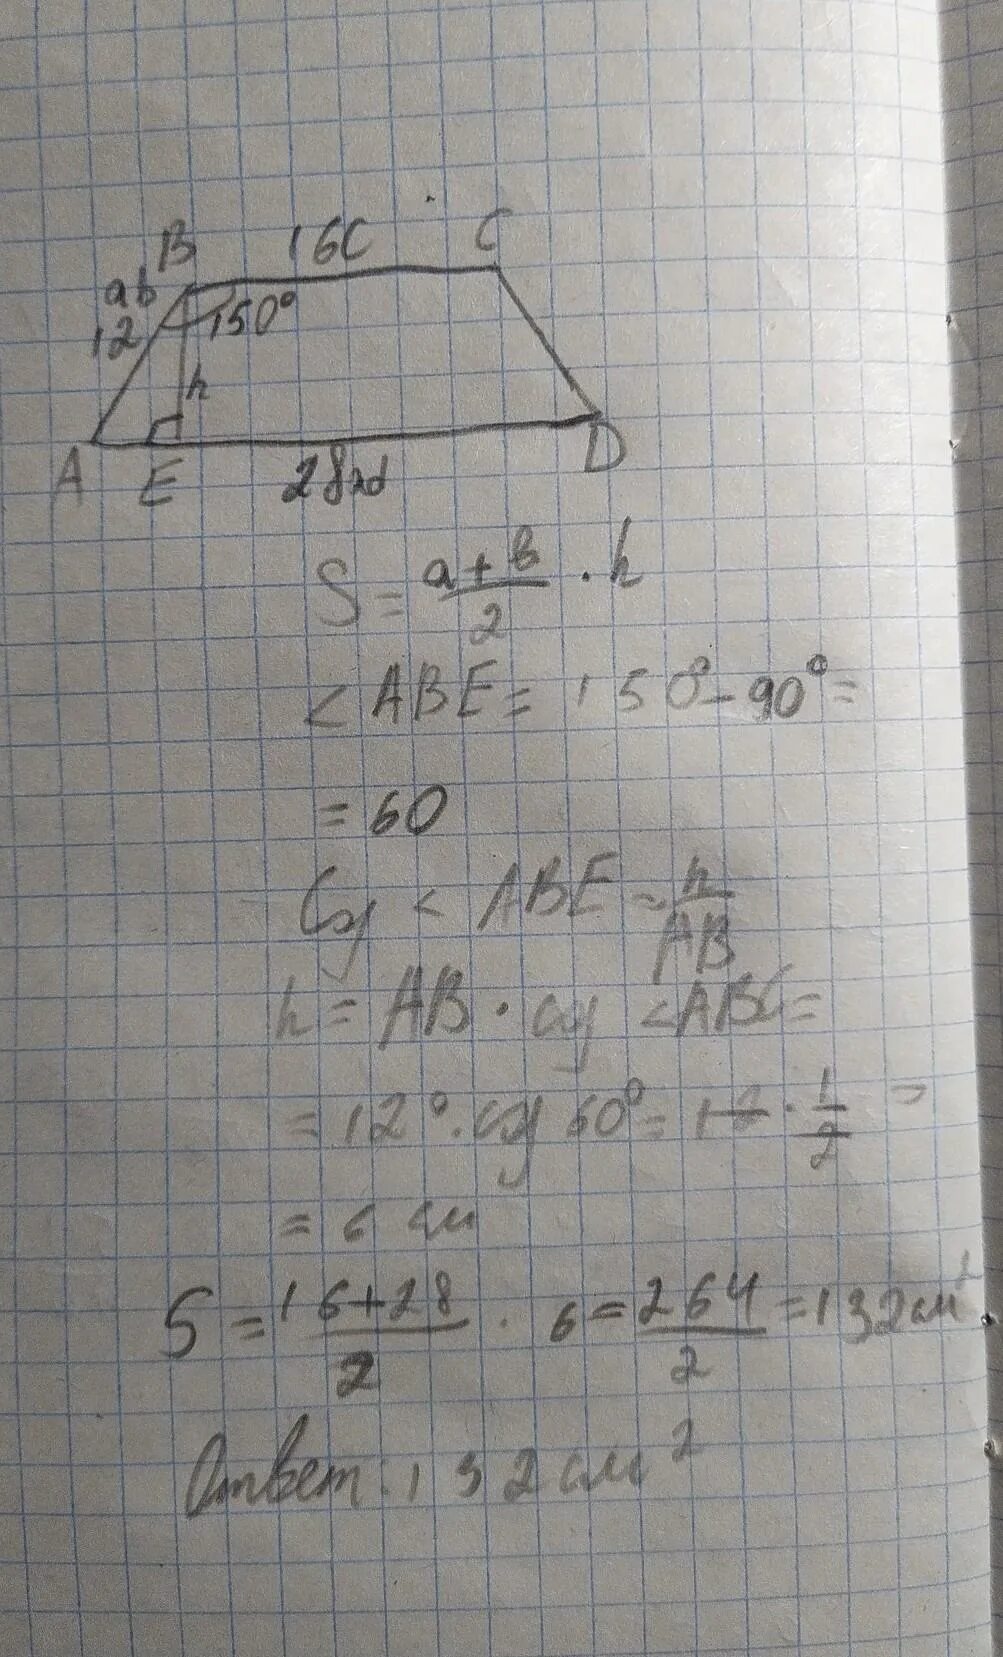 B 16C C
ab
12 150°
h
A E 28 D
S = a+b/2 · h
<ABE = 150°-90° =
= 60
Cos < ABE = h/AB
h = AB · cos <ABC =
= 12° · cos 60° = 12 · 1/2 =
= 6 см
S = 16+28/2 · 6 = 264/2 = 132 см²
Ответ: 132 см²